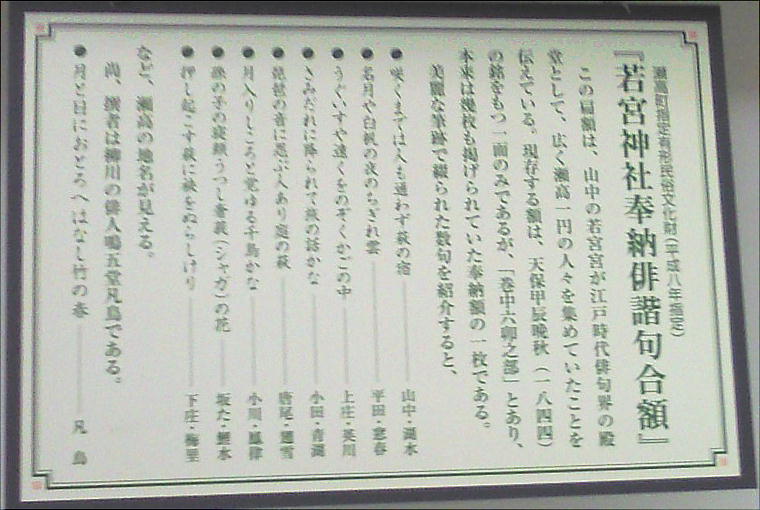 瀬高町指定有形民俗文化財(平成八年指定)
『若宮神社奉納俳諧句合額』
この扁額は、山中の若宮宮が江戸時代俳句界の殿
堂として、広く瀬高一円の人々を集めていたことを
伝えている。現存する額は、天保甲辰晩秋(一八四四)
の銘をもつ一面のみであるが、「巻中六卯之部」とあり、
本来は幾枚も掲げられていた奉納額の一枚である。
美麗な筆跡で綴られた数句を紹介すると、
●咲くまでは人も通わず萩の宿 山中・湖水
●名月や白帆の夜のちぎれ雲 平田・悲春
●うぐいすや遠くをのぞくかごの中 上庄・英川
●さみだれに降られて旅の話かな 小田・青湖
●琵琶の音に忍ぶ人あり庭の萩 唐尾・
●月入りしころと覚ゆる千鳥かな 小川・鳳律
●の子の寝顔うつし著莪(シャガ)の花 坂た・鯉水
●押し起こす萩に袂をぬらしけり 下庄・梅里
など、瀬高の地名が見える。
尚、撰者は柳川の俳人鳴五堂凡鳥である。
●月と日におとろへはなし竹の春 凡鳥